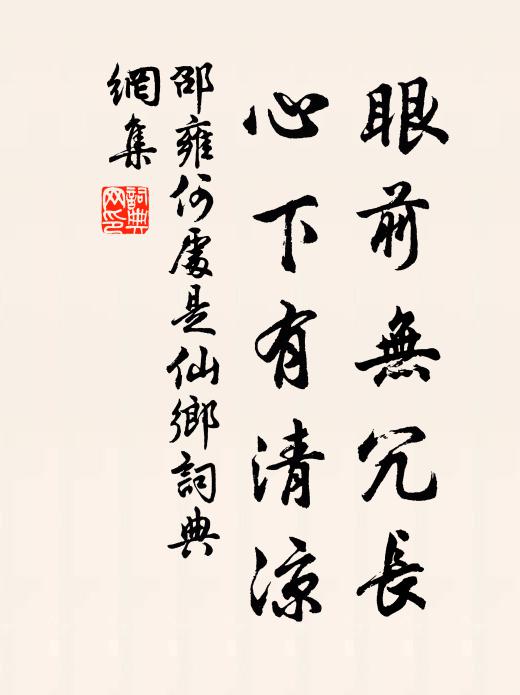 眼前無冗長
心下有清涼
邵雍何處是仙鄉詞典
網集
詞典
网印